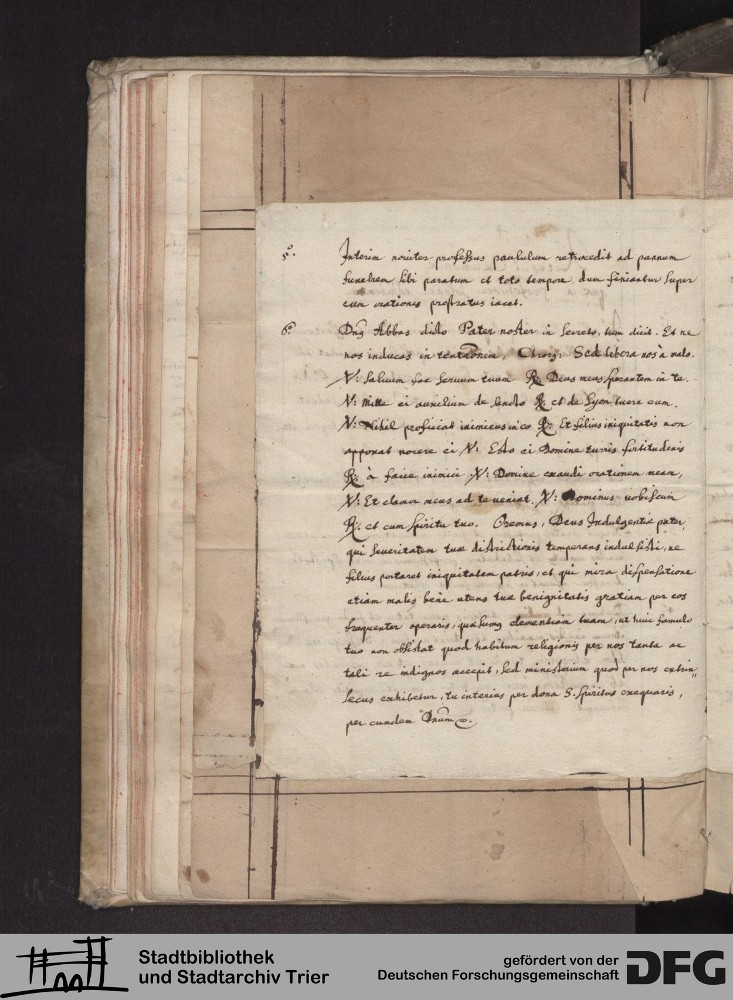 5º. Interim noviter professus paululum retrocedit ad pannum
funebrem sibi paratum et toto tempore dum feriantur super
eum orationes prostratus iacet.
6º Dnş Abbas dicto Pater noster in secreto, tum dicit. Et ne
nos inducas in tentaõnem, Chorş: Sed libera nos à malo.
V: Salvum fac servum tuum R: Deus meus sperantem in te.
V: Mitte ei auxilium de sancto R: et de Syon tuere eum.
V: Nihil proficiat inimicus in eo R: Et filius iniquitatis non
apponat nocere ei V: Esto ei Domine turris fortitudinis
R: à facie inimici V: Domine exaudi orationem meam,
V: Et clamor meus ad te veniat. V: Dominus vobiscum
R: et cum spiritu tuo. Oremus, Deus Indulgentiæ pater,
qui severitatem tuæ districtionis temperans indulsisti, ne
filius portaret iniquitatem patris, et qui mira dispensatione
etiam malis bene utens tuæ benignitatis gratiam per eos
frequenter operaris, quæsumş clementiam tuam, ut huic famulo
tuo non obsistat quod habitum religionis per nos tanta ac
tali re indignos accepit, sed ministerium quod per nos extrin„
secus exhibetur, tu interius per dona S. Spiritus exequaris,
per eundem Dnum
Stadtbibliothek
und Stadtarchiv Trier
gefördert von der
Deutschen Forschungsgemeinschaft
DFG